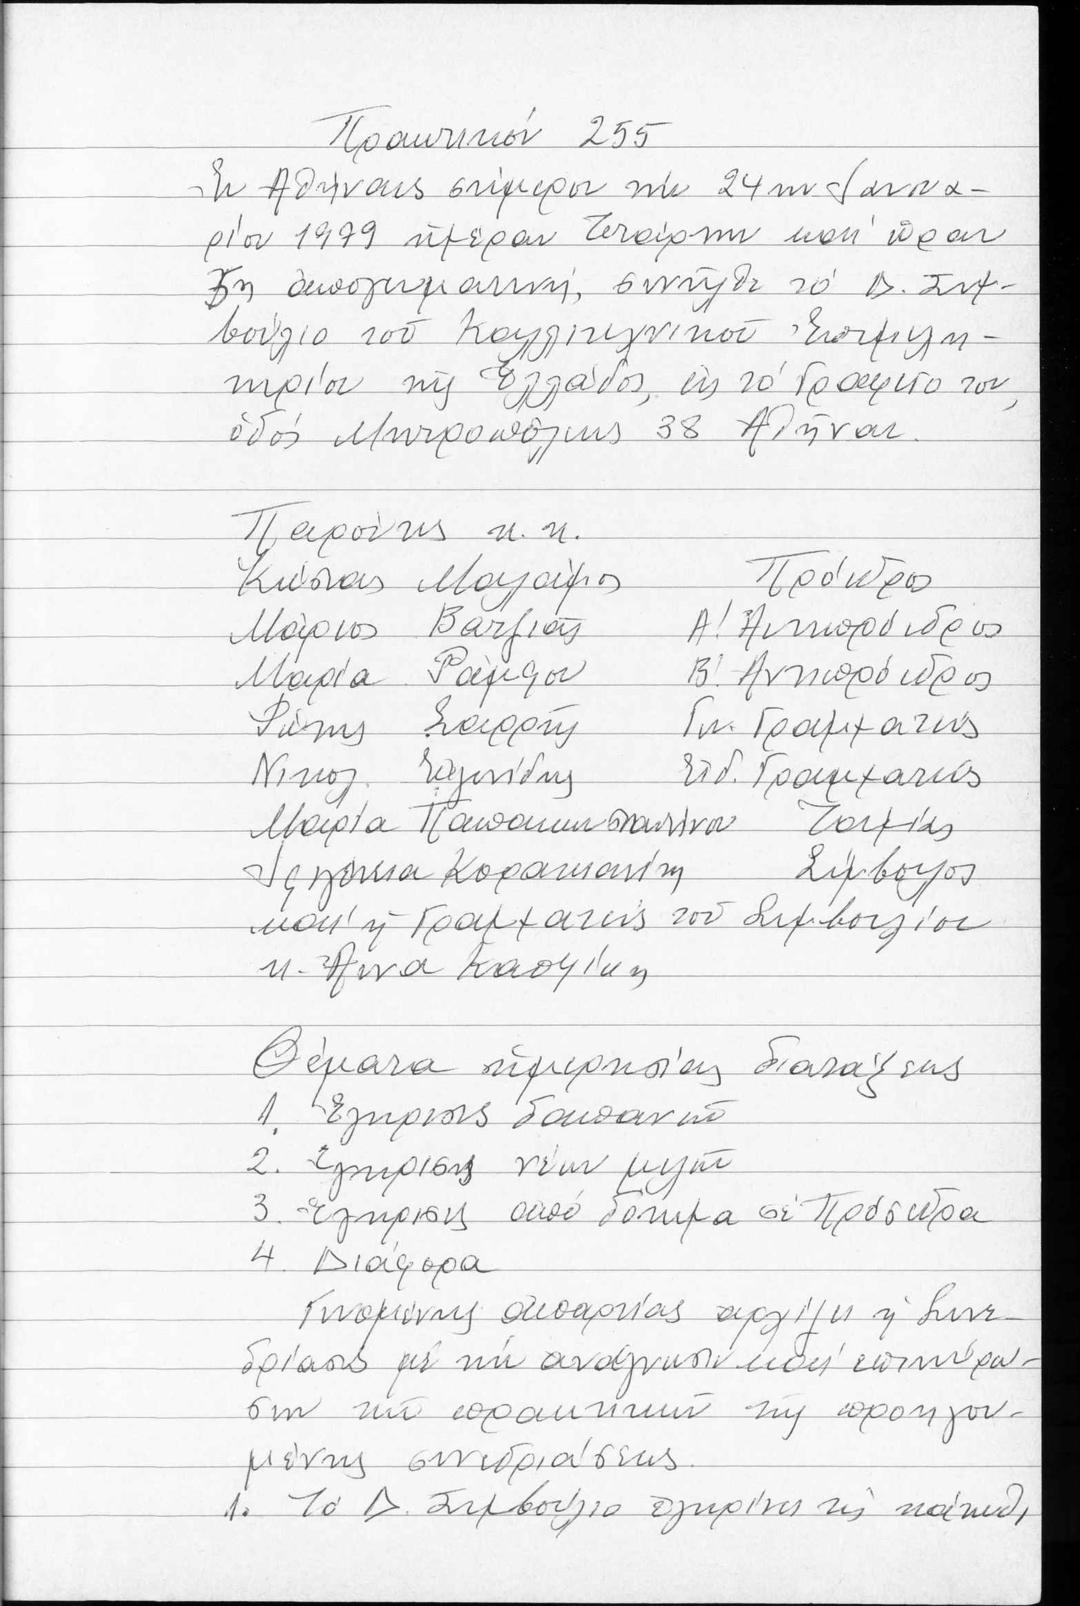 Πρακτικόν 255
Ἐν Ἀθήναις σήμερον τήν 24ην Ἰανουα-
ρίου 1979 ἡμέραν Τετάρτην καί ὥραν
7η ἀπογευματινή, συνῆλθε τό Δ. Συμ-
βούλιο τοῦ Καλλιτεχνικοῦ Ἐπιμελη-
τηρίου τῆς Ἑλλάδος, εἰς τό Γραφεῖο του,
ὁδός Μητροπόλεως 38 Ἀθῆναι.
Παρόντες κ.κ.
Κώστας Μαλάμος Πρόεδρος
Μάριος Βατζιᾶς Α! Ἀντιπρόεδρος
Μαρία Ράμφου Β! Ἀντιπρόεδρος
Φώτης Σαρρῆς Γεν. Γραμματεύς
Νικολ. Εἰδ. Γραμματεύς
Μαρία Παπακωνσταντίνου Ταμίας
Σύμβουλος
καί ἡ Γραμματεύς τοῦ Συμβουλίου
κ. Ἄννα
Θέματα ἡμερησίας διατάξεως
1. Ἔγκρισις δαπανῶν
2. Ἔγκρισις νέων μελῶν
3. Ἔγκρισις ἀπό δόκιμα σέ Πρόσεδρα
4. Διάφορα
Γενομένης ἀπαρτίας ἀρχίζει ἡ Συνε-
δρίασις μέ τήν ἀνάγνωσιν καί ἐπικύρω-
σιν τῶν πρακτικῶν τῆς προηγου-
μένης συνεδριάσεως.
1. Τό Δ. Συμβούλιο ἐγκρίνει τίς κάτωθι